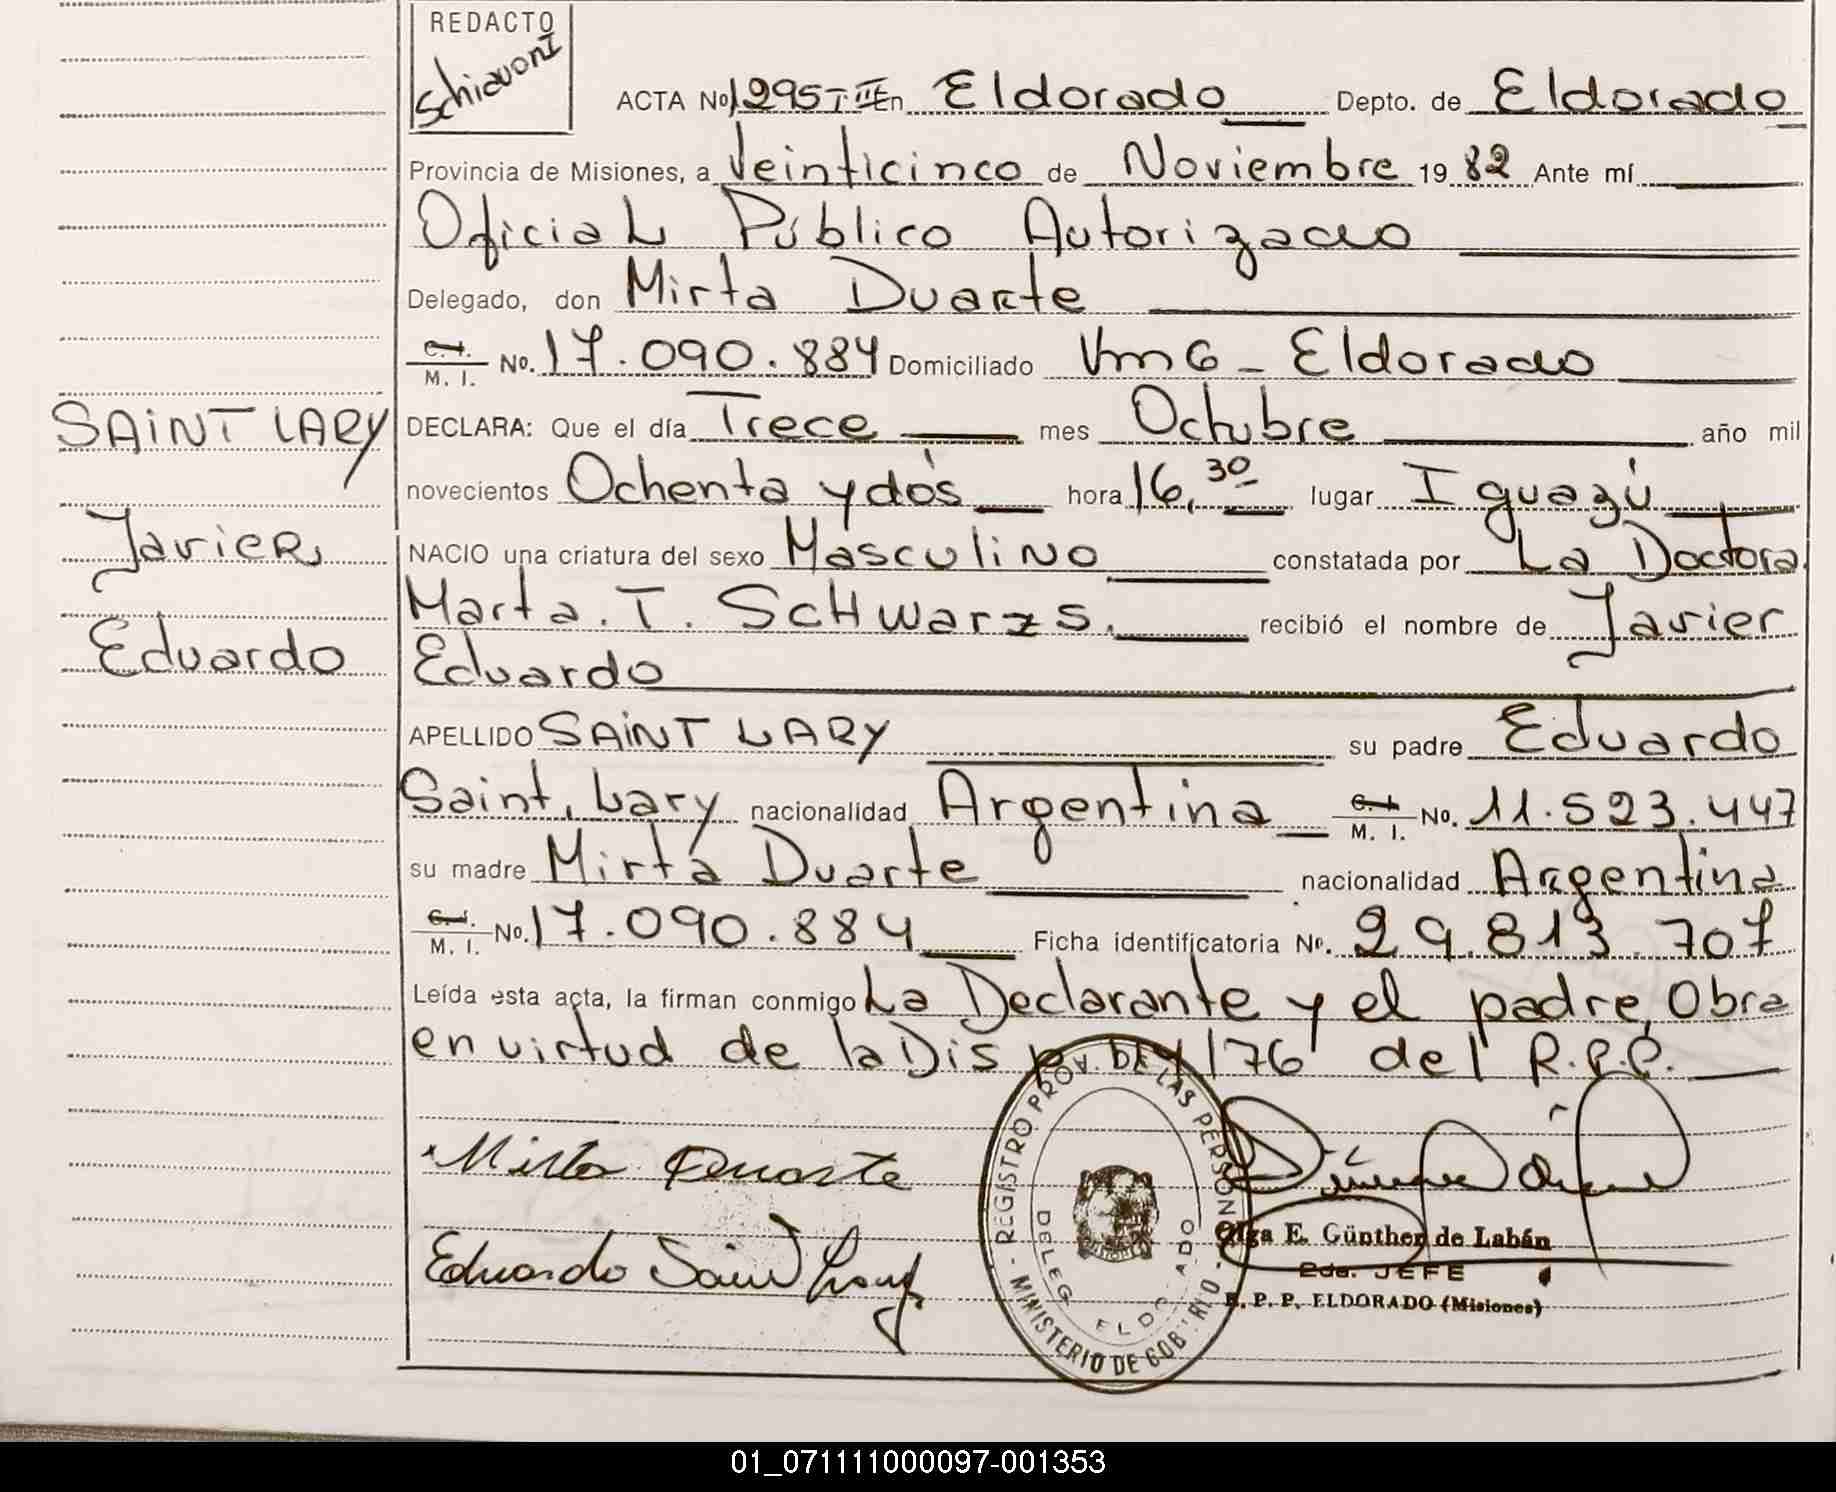 REDACTO
Schiavoni
ACTA Nº 1295 T III En Eldorado Depto. de Eldorado
Provincia de Misiones, a Veinticinco de Noviembre 19 82 Ante mí
Oficial Público Autorizado
Delegado, don Mirta Duarte
C. I. M. I. No. 17.090.884 Domiciliado Km 6 - Eldorado
SAINT LARY
DECLARA: Que el día Trece mes Octubre año mil
novecientos Ochenta y dós hora 16,30 lugar Iguazú
Javier
NACIO una criatura del sexo Masculino constatada por La Doctora
Marta. T. SCHwarzs. recibió el nombre de Javier
Eduardo
Eduardo
APELLIDO SAINT LARY su padre Eduardo
Saint, Lary nacionalidad Argentina C. I. M. I. No. 11.523.447
su madre Mirta Duarte nacionalidad Argentina
C. I. M. I. No. 17.090.884 Ficha identificatoria Nº. 29.813.707
Leída esta acta, la firman conmigo La Declarante y el padre, Obra
en virtud de la Disp. /76 del R.P.P.
Mirta Duarte
Eduardo Saint Lary
- REGISTRO PROV. DE LAS PERSON
- MINISTERIO DE GOB
DELEG ELDO ADO
Olga E. Günther de Labán
2da. JEFE
R. P. P. ELDORADO (Misiones)
01_071111000097-001353